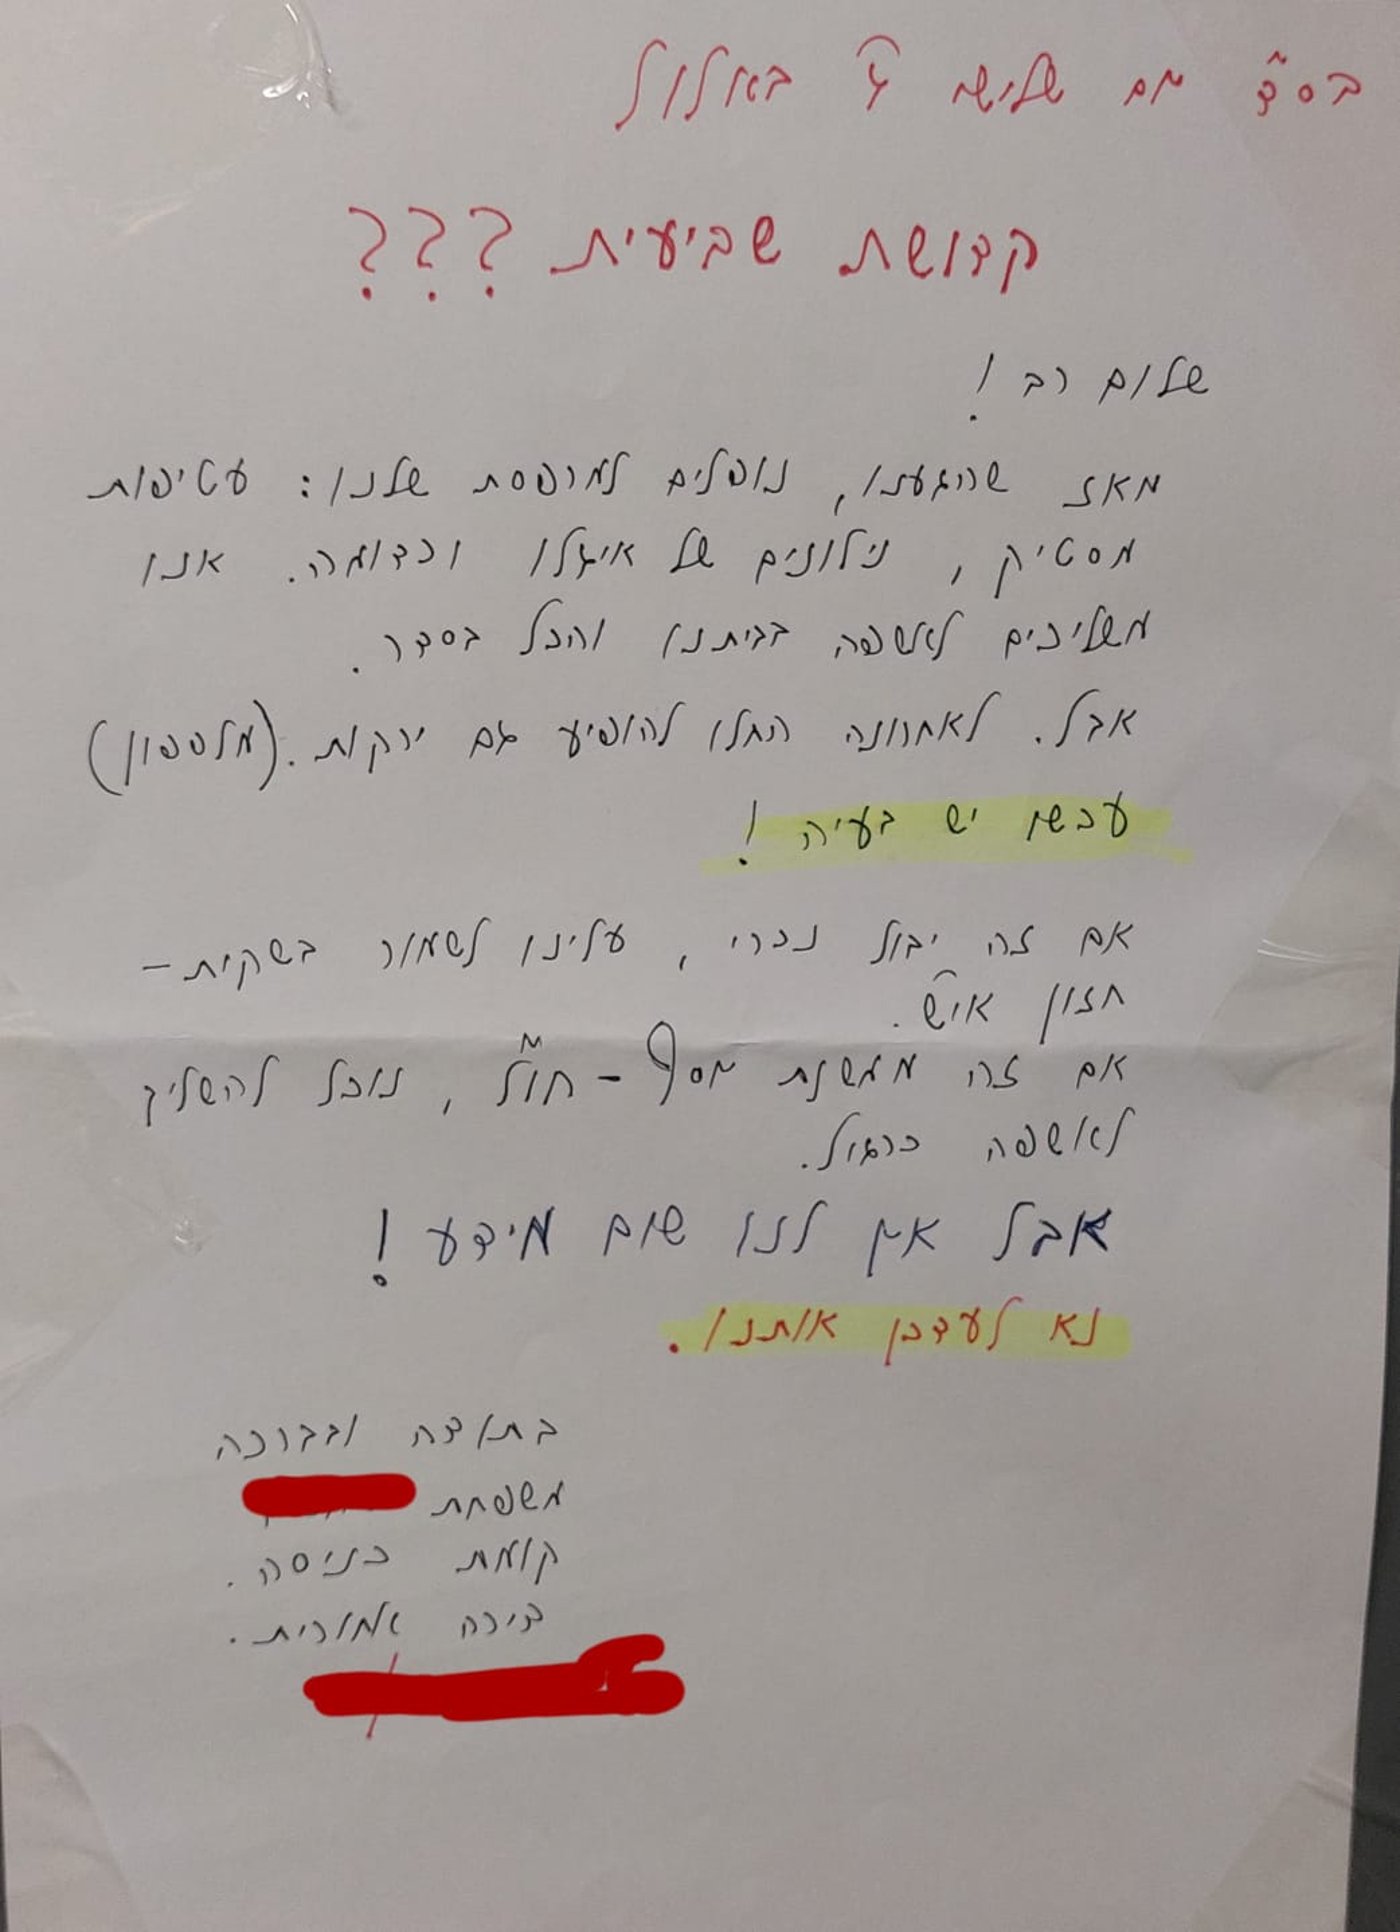 בס"ד יום שלישי י' באלול
קדושת שביעית ???
שלום רב !
מאז שהגענו, נופלים למרפסת שלנו: עטיפות
מסטיק, ניילונים של איגלו וכדומה. אנו
משליכים לאשפה בביתנו והכל בסדר.
אבל. לאחרונה החלו להופיע גם ירקות. (מלפפון)
עכשיו יש בעיה !
אם זה יבול נכרי, עלינו לשמור בשקית -
חזון איש.
אם זה ממשנת יוסף - חו"ל, נוכל להשליך
לאשפה כרגיל.
אבל אין לנו שום מידע !
נא לעדכן אותנו.
בתודה ובברכה
משפחת
קומת כניסה.
דירה אחורית.